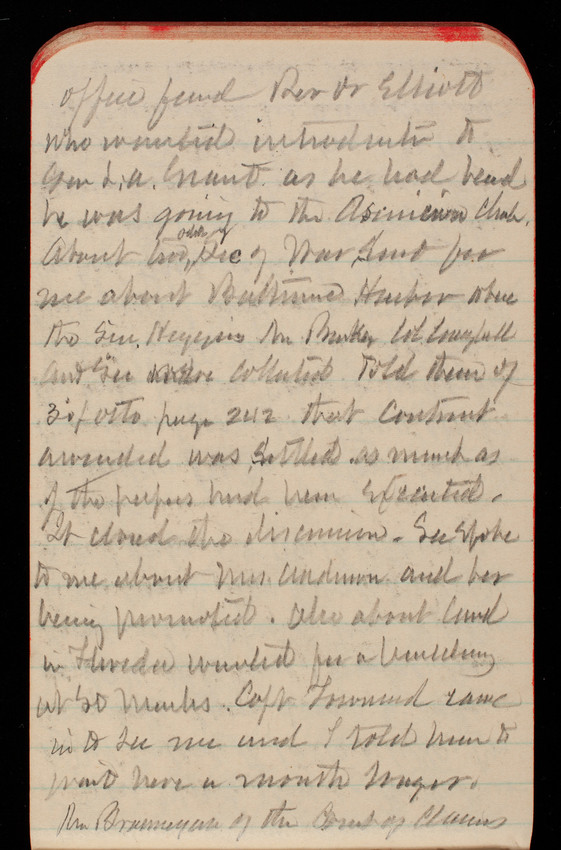 office found Rev Dr Elliott
who wanted introduction to
Gen L.A. Grant as he had heard
he was going to the Asincion Chch.
About Sec of War Sent for
me about Baltimore Harbor when
the Sen. Higgins Mr Col
and Sec collected told them of
3d of Otto page 242 that Contract
awarded was Settled as much as
if the papers had been Executed.
It closed the discussion. Sec Spoke
to me about Mrs Anderson and her
being promoted. Also about land
in Florida wanted for a building
at St Marks. Capt Townsend came
in to see me and I told him to
wait here a month longer.
Mr of the Court of Claims